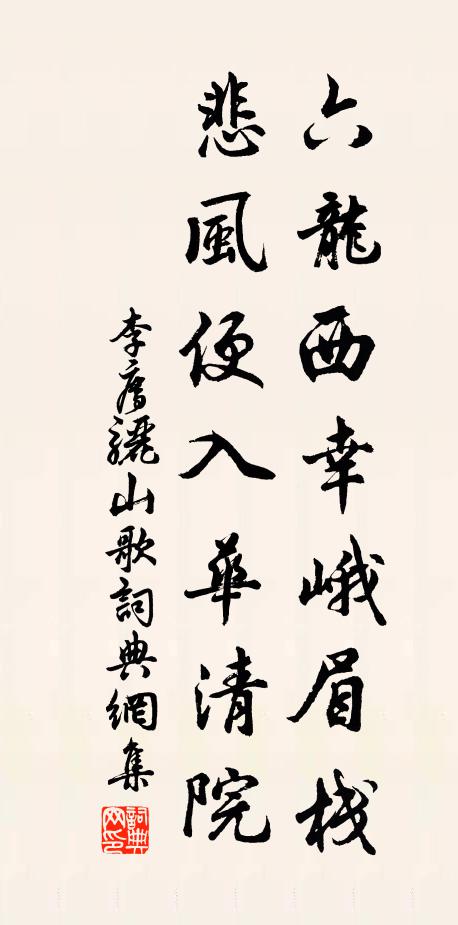 六龍西幸峨眉棧
悲風便入華清院
李廌驪山歌詞典網集
詞典网印